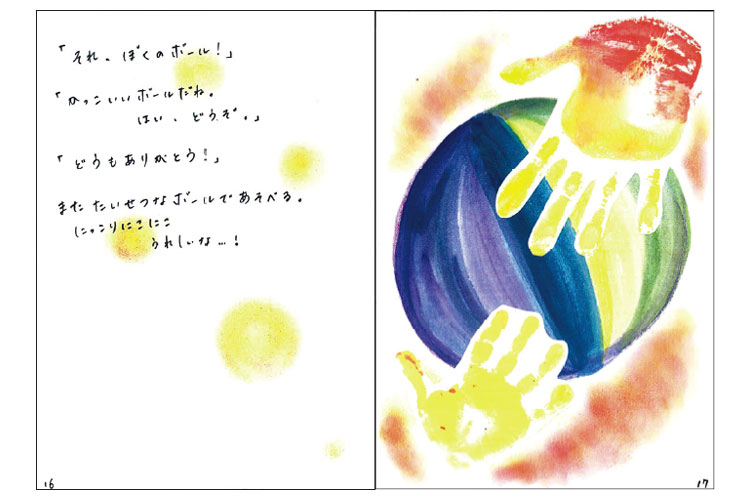 「それ、ぼくのボール！」
「かっこいいボールだね。
はい、どうぞ。」
「どうもありがとう！」
また たいせつなボールであそべる。
にっこりにこにこ
うれしいな…！
16
17